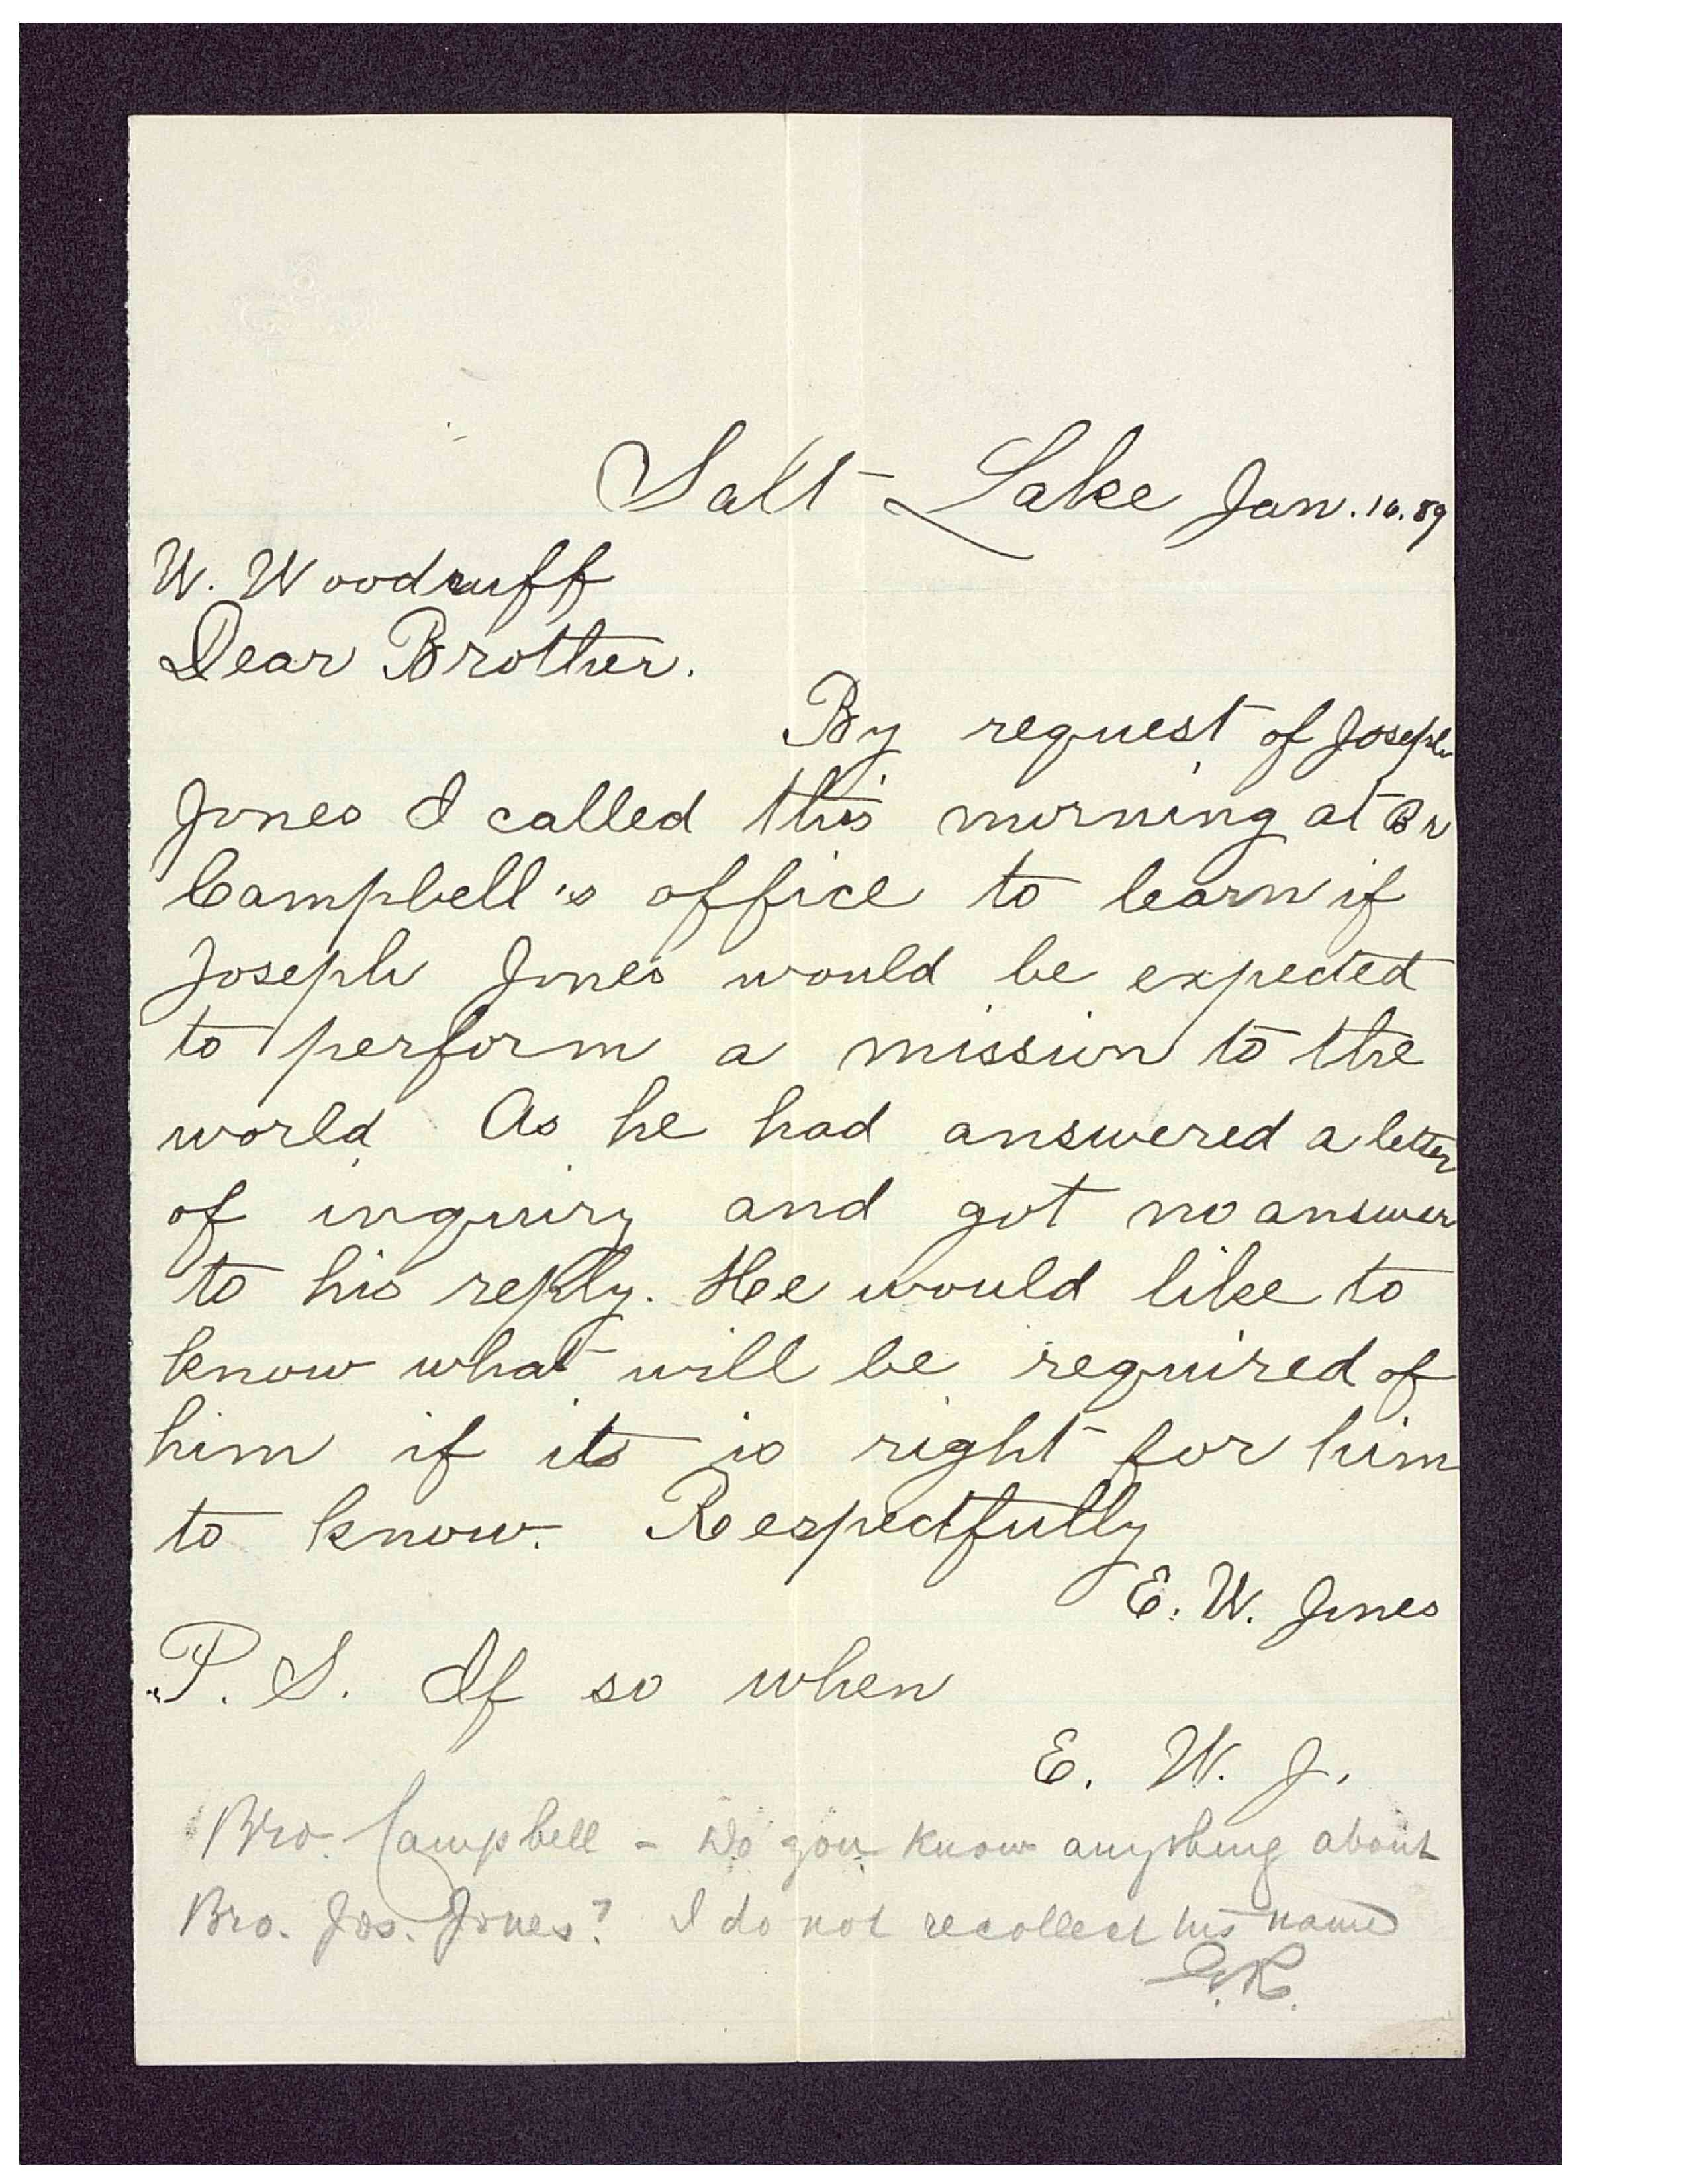 Salt Lake Jan. 16. 89
W. Woodruff
Dear Brother.
By request of Joseph
Jones I called this morning at Br
Campbell's office to learn if
Joseph Jones would be expected
to perform a mission to the
world As he had answered a letter
of inquiry and got no answer
to his reply. He would like to
know what will be required of
him if its is right for him
to know. Respectfully
E. W. Jones
P. S. If so when
E. W. J.
Bro. Campbell - Do you know anything about
Bro. Jos. Jones? I do not recollect his name
G.R.